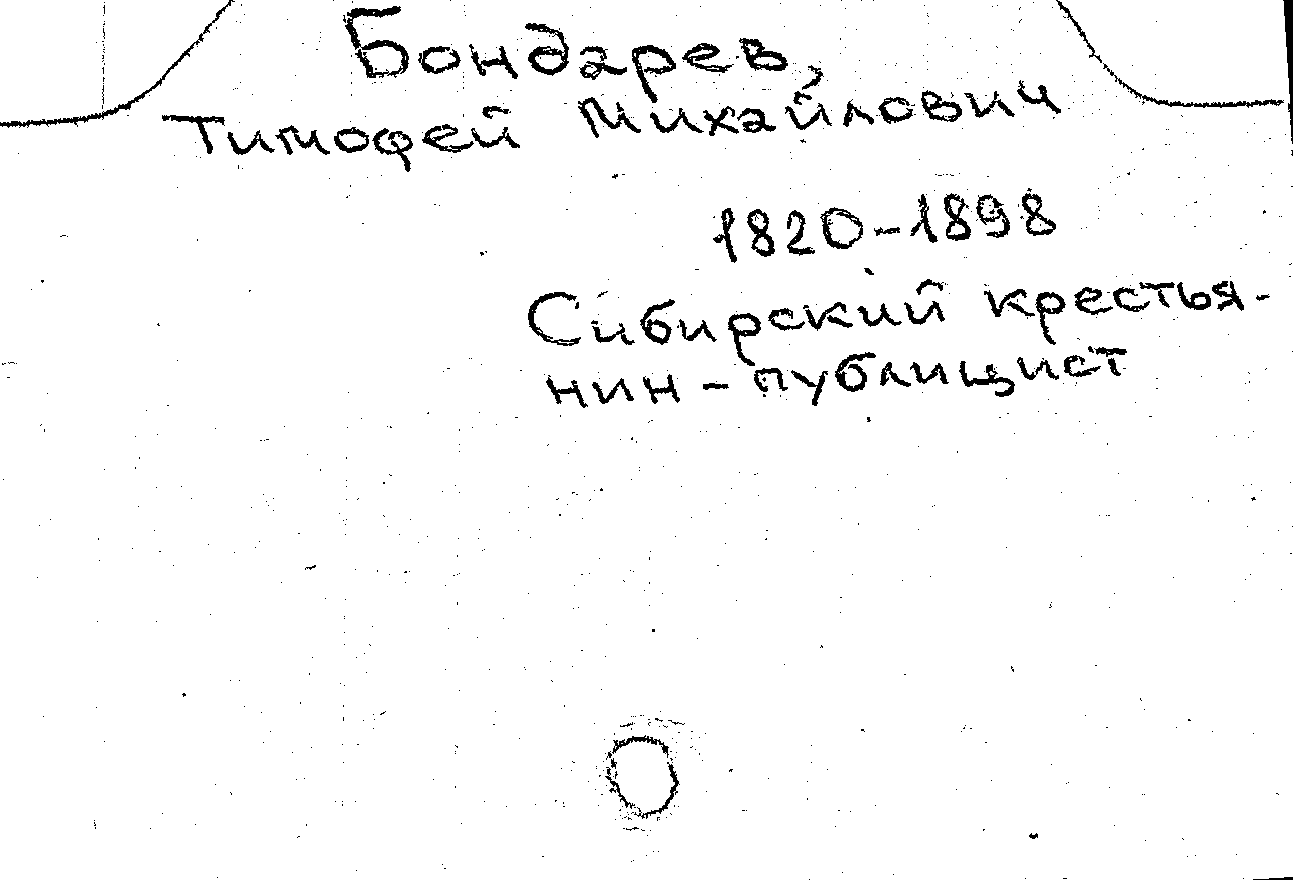 Бондарев,
Тимофей Михайлович
1820-1898
Сибирский крестья-
нин - публицист